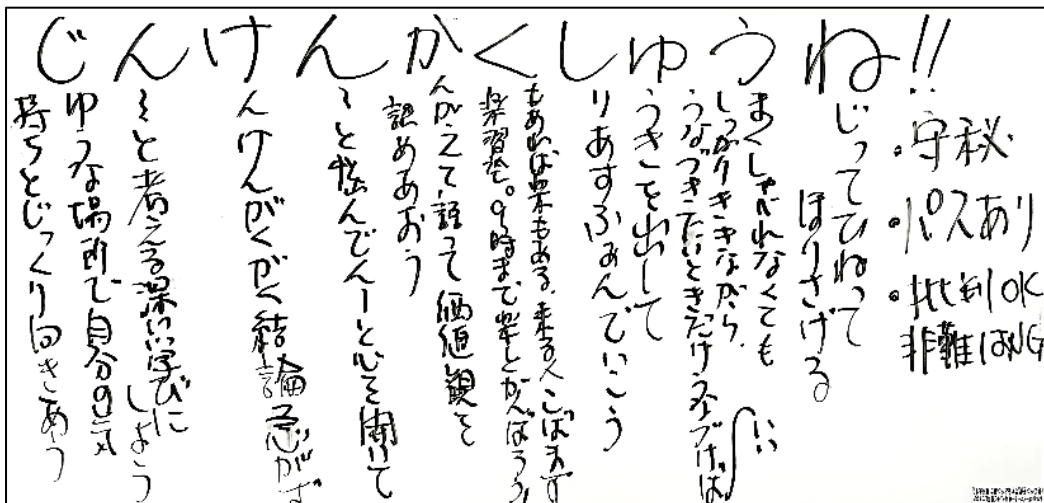 じんけんかくしゅうね!!
・守秘
・パスあり
・批判OK
非難はNG
じってひねって
ほりさげる
まくしゃべれなくても
しっかりききながら
うなづきたいときだけうなづけば
いい
うきを出して
りあすふぁんでいこう
もあれば楽もある。来る人こばまず
楽習会。9時まで楽しくがんばろう!
んがえて、語って価値観を
認めあおう
〜と悩んでんーと心を開いて
んけんがくがく結論急がず
〜と考える深い学びに
しよう
ゆうな場所で自分の気
持ちとじっくり向きあう